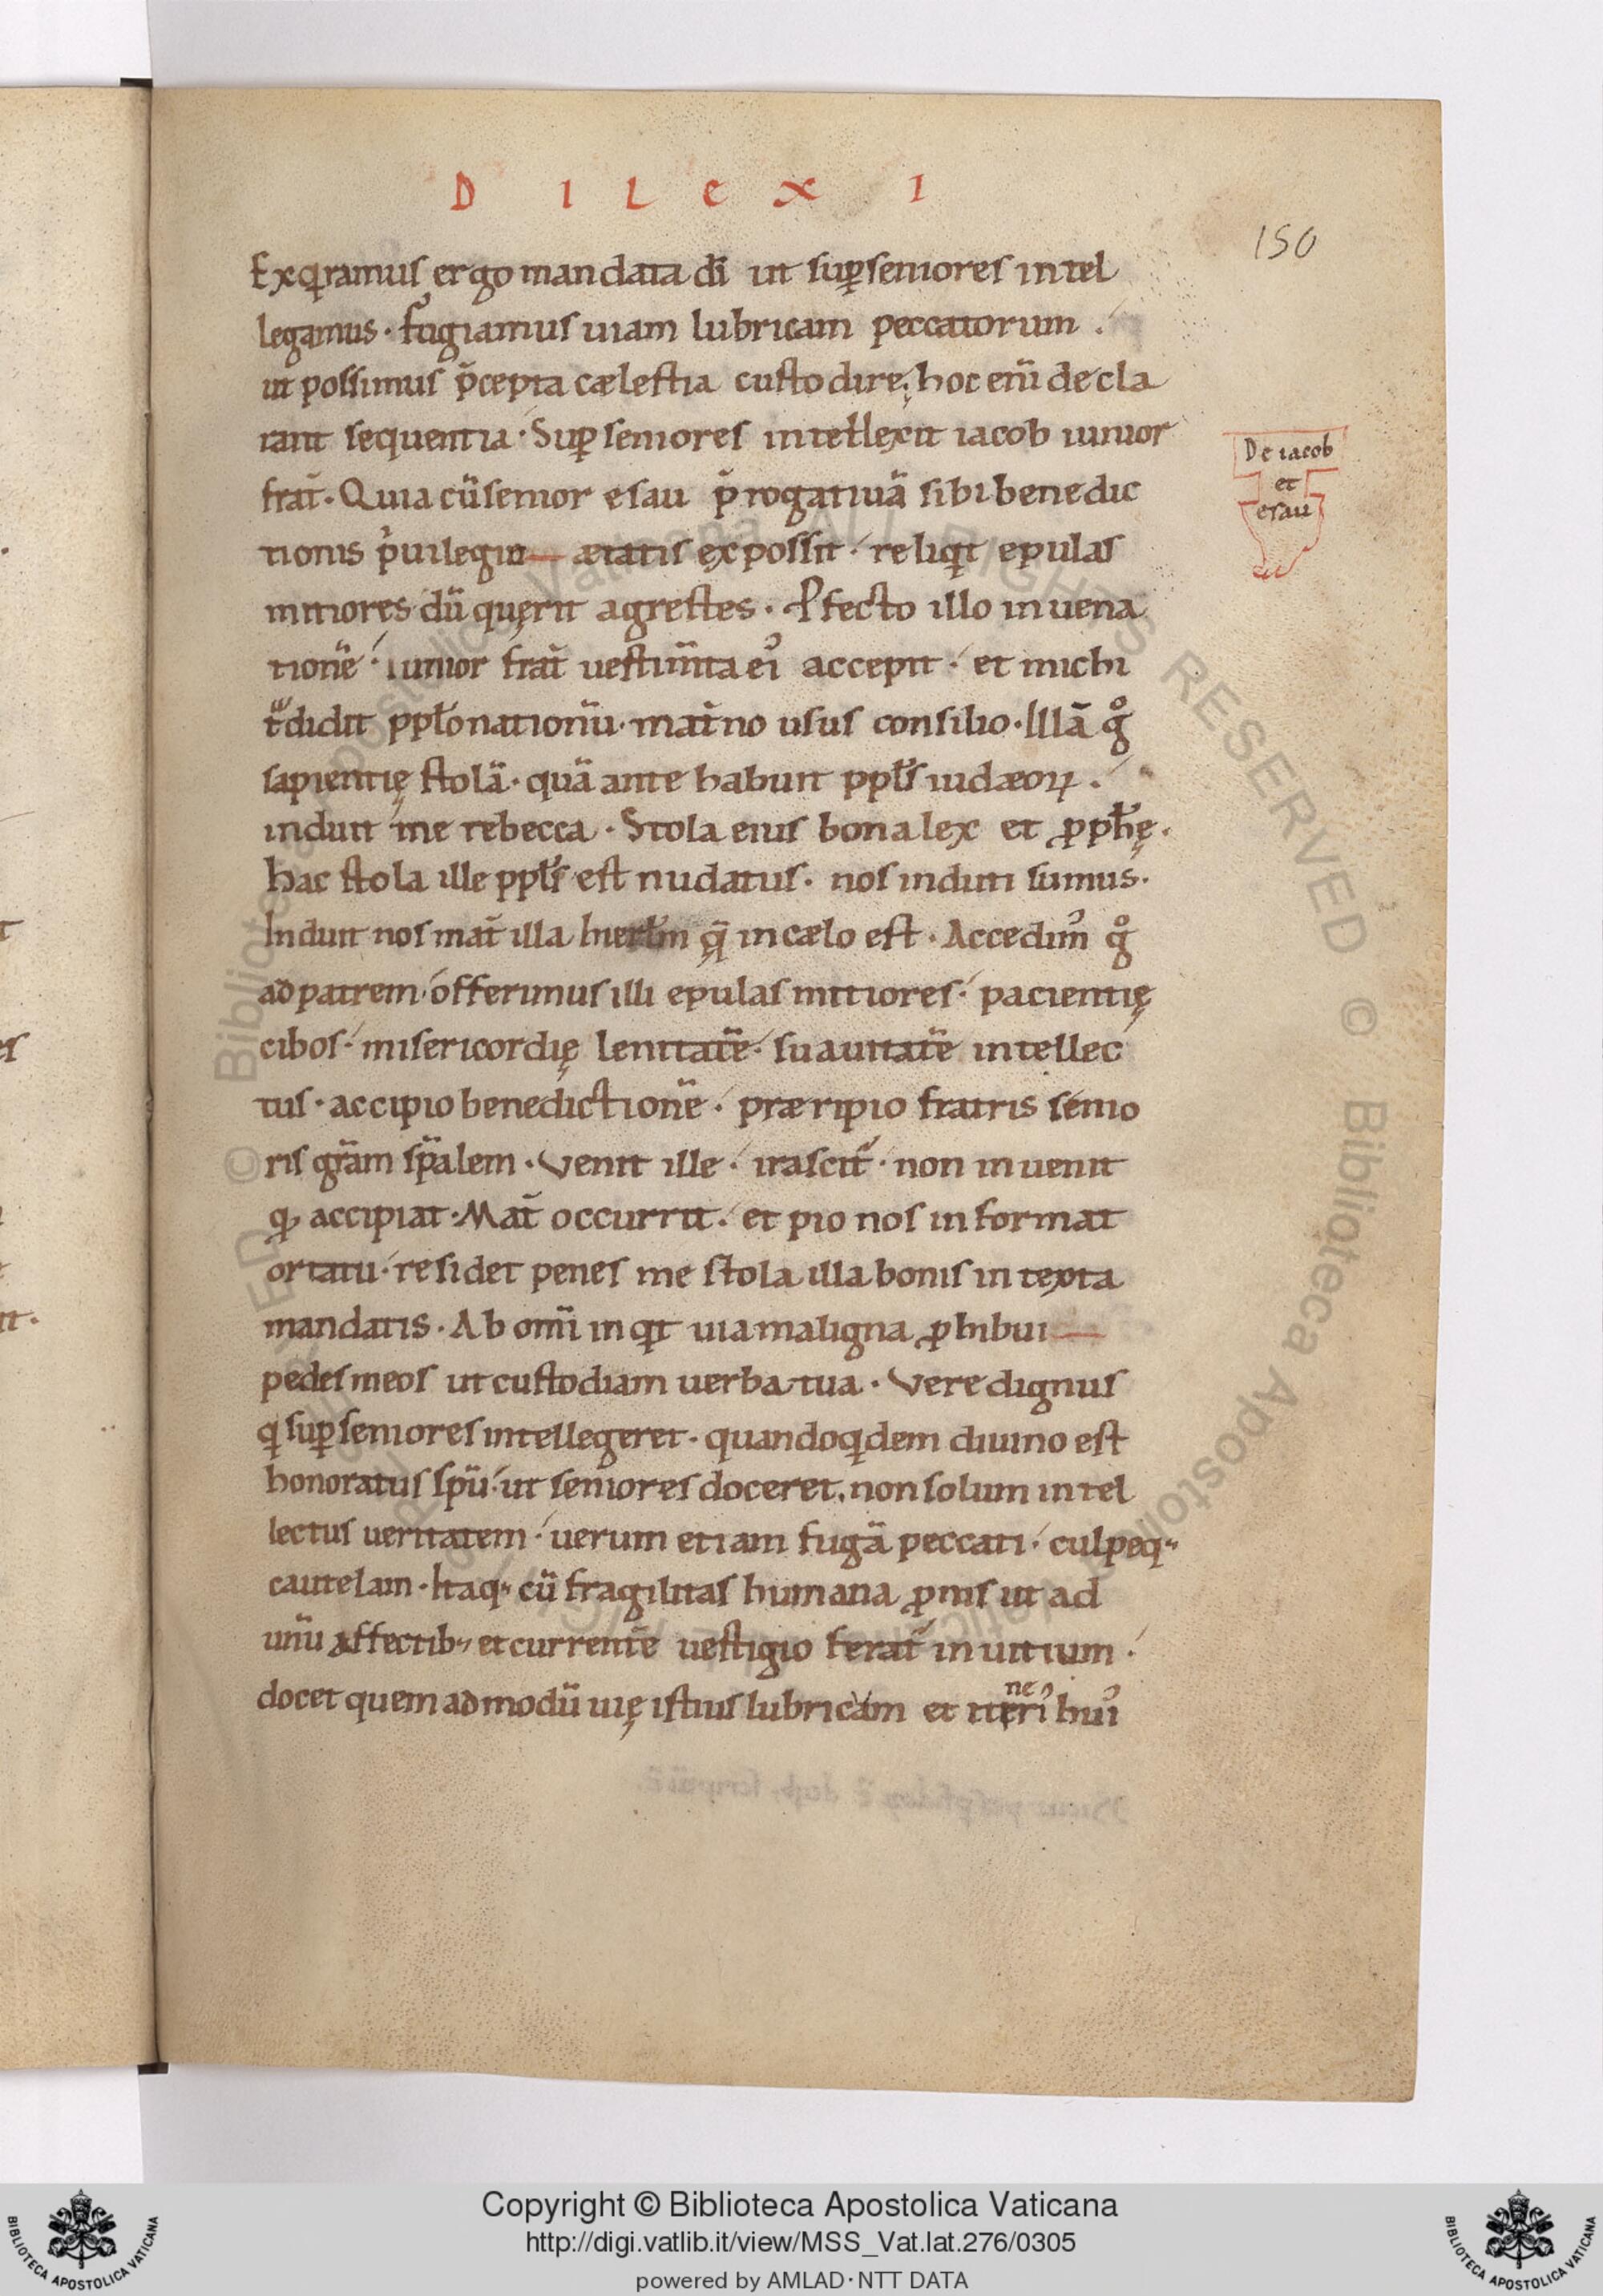 D I L E X I
150
Exqͥramus ergo mandata dī ut suꝑ seniores intel
legamus · fugiamus uiam lubricam peccatorum .
ut possimus p̄cepta cælestia custodire; hoc enī decla
rant sequentia · Suꝑ seniores intellexit iacob iunior
frat̄ · Quia cū senior esau p̄rogatiuā sibi benedic
tionis pͥuilegiu— ætatis expossit · reliqͥt epulas
mitiores dū quęrit agrestes · Pfecto illo in uena
tionē · iunior frat̄ uestim̄ta eiꝰ accepit · et michi
tͣdidit ppło nationū · mat̄no usus consilio · Illā gͦ
sapientię stolā · quā ante habuit ppłs iudæoꝝ .
induit me rebecca · Stola eius bona lex et ꝓph̄ę .
hac stola ille ppłs est nudatus · nos induti sumus ·
Induit nos mat̄ illa hierłm q̄ in cælo est · Accedimꝰ gͦ
ad patrem offerimus illi epulas mitiores · pacientię
cibos · misericordię lenitatē · suauitatē intellec
tus · accipio benedictionē · præripio fratris senio
ris grām sp̄alem · Venit ille · irascit᷑ · non inuenit
qͥ accipiat · Mat̄ occurrit · et pio nos informat
ortatu · residet penes me stola illa bonis intexta
mandatis · Ab om̄i inqͥt uia maligna ꝓhibui —
pedes meos ut custodiam uerba tua · Vere dignus
qͥ suꝑ seniores intellegeret · quandoqͥdem diuino est
honoratus spū · ut seniores doceret, non solum intel
lectus ueritatem · uerum etiam fugā peccati · culpęq;
cautelam · Itaq; cū fragilitas humana ꝓnis ut ad
unū affectib; et currentē uestigio ferat᷑ in uitium ·
docet quemadmodū uię istius lubricam et iteriꝰ huiꝰ
ne
De iacob
et
esau
Copyright © Biblioteca Apostolica Vaticana
http://digi.vatlib.it/view/MSS_Vat.lat.276/0305
powered by AMLAD·NTT DATA
BIBLIOTECA APOSTOLICA VATICANA
BIBLIOTECA APOSTOLICA VATICANA